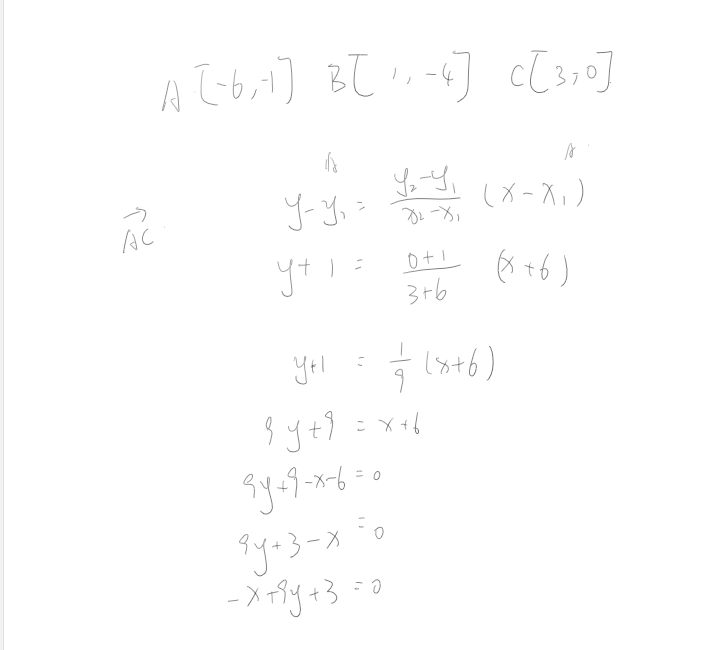 A[-6,-1] B[1,-4] C[3,0]
A A
y-y₁ = y₂-y₁/x₂-x₁ (x-x₁)
→AC
y+1 = 0+1/3+6 (x+6)
y+1 = 1/9 (x+6)
9y+9 = x+6
9y+9-x-6=0
9y+3-x=0
-x+9y+3=0